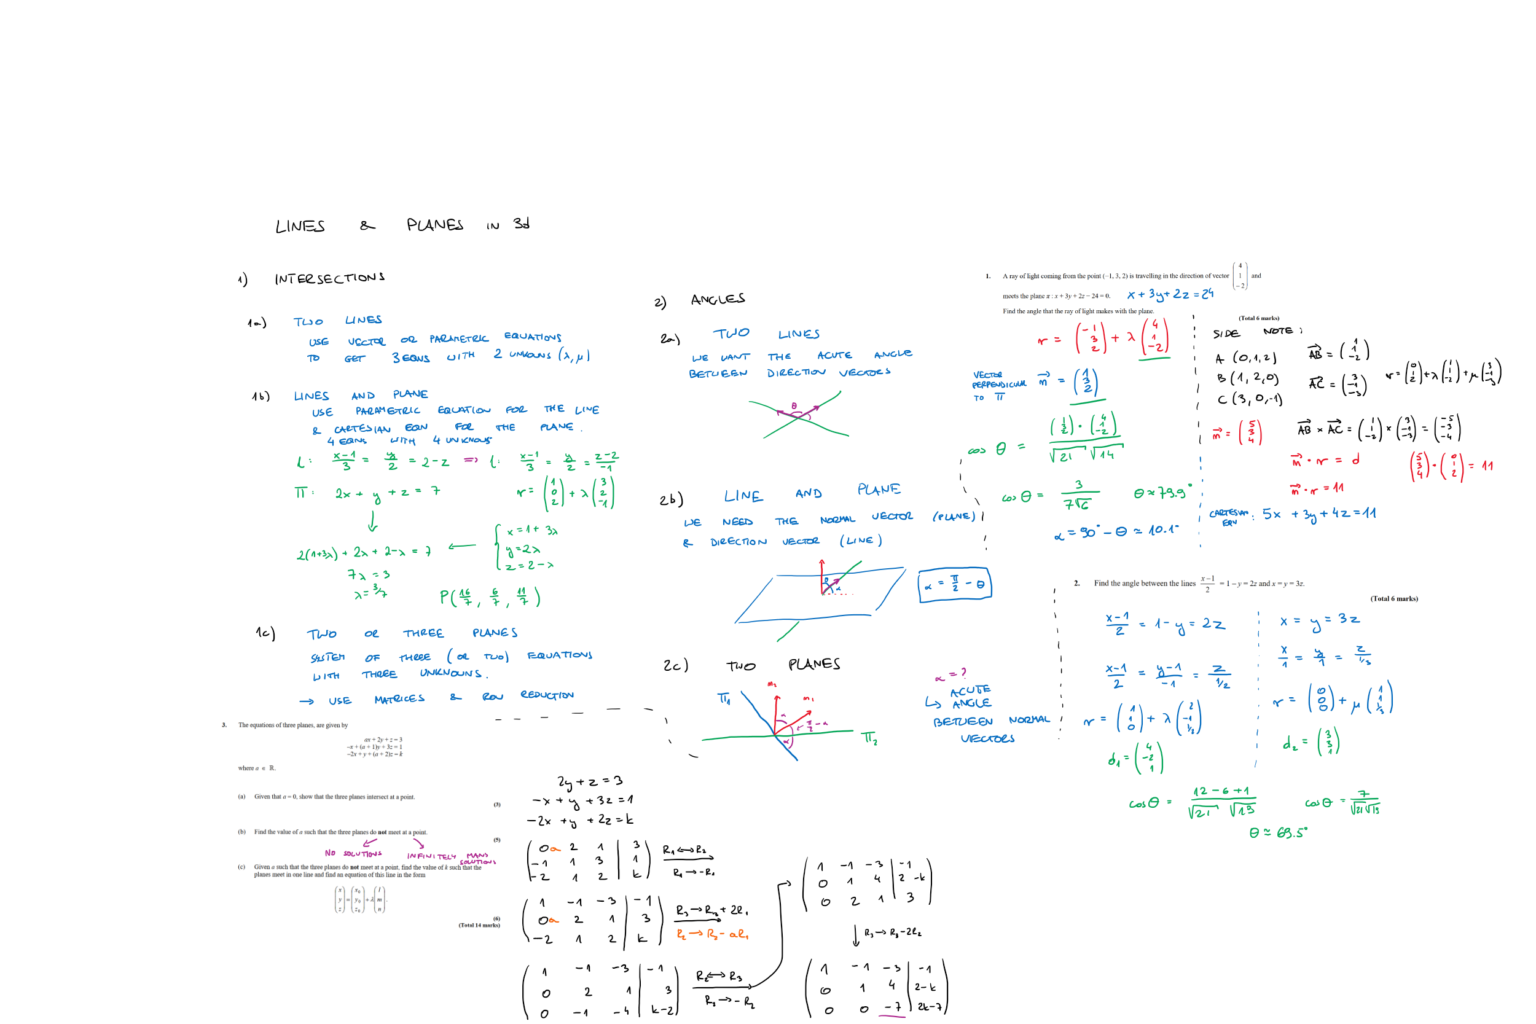 LINES & PLANES IN 3d
1) INTERSECTIONS
1a) TWO LINES
USE VECTOR OR PARAMETRIC EQUATIONS
TO GET 3 EQNS WITH 2 UNKOUNS (λ, μ)
1b) LINES AND PLANE
USE PARAMETRIC EQUATION FOR THE LINE
& CARTESIAN EQN FOR THE PLANE.
4 EQNS WITH 4 UNKNOWS
L: (x-1)/3 = y/2 = 2-z => L: (x-1)/3 = y/2 = (z-2)/-1
Π: 2x + y + z = 7 r = (1 0 2) + λ (3 2 -1)
x = 1 + 3λ
y = 2λ
z = 2 - λ
2(1+3λ) + 2λ + 2-λ = 7
7λ = 3
λ = 3/7
P(16/7, 6/7, 11/7)
1c) TWO OR THREE PLANES
SYSTEM OF THREE (OR TWO) EQUATIONS
WITH THREE UNKNOUNS.
→ USE MATRICES & ROW REDUCTION
3. The equations of three planes, are given by
ax + 2y + z = 3
-x + (a + 1)y + 3z = 1
-2x + y + (a + 2)z = k
where a ∈ ℝ.
(a) Given that a = 0, show that the three planes intersect at a point.
(3)
(b) Find the value of a such that the three planes do not meet at a point.
(5)
NO SOLUTIONS INFINITELY MANY SOLUTIONS
(c) Given a such that the three planes do not meet at a point, find the value of k such that the
planes meet in one line and find an equation of this line in the form
(x y z) = (x₀ y₀ z₀) + λ (l m n).
(6)
(Total 14 marks)
2y + z = 3
-x + y + 3z = 1
-2x + y + 2z = k
(0a 2 1 | 3) R₁ ↔ R₂
(-1 1 3 | 1)
(-2 1 2 | k) R₁ → -R₁
(1 -1 -3 | -1) R₃ → R₃ + 2R₁
(0a 2 1 | 3) R₂ → R₂ - aR₁
(-2 1 2 | k)
(1 -1 -3 | -1) R₂ ↔ R₃
(0 2 1 | 3)
(0 -1 -4 | k-2) R₂ → -R₂
(1 -1 -3 | -1)
(0 1 4 | 2-k)
(0 2 1 | 3)
R₃ → R₃ - 2R₂
(1 -1 -3 | -1)
(0 1 4 | 2-k)
(0 0 -7 | 2k-7)
2) ANGLES
2a) TWO LINES
WE WANT THE ACUTE ANGLE
BETWEEN DIRECTION VECTORS
θ
2b) LINE AND PLANE
WE NEED THE NORMAL VECTOR (PLANE)
& DIRECTION VECTOR (LINE)
θ α
α = π/2 - θ
2c) TWO PLANES
Π₁ n₂ n₁ α π/2 - α α Π₂
α = ?
↳ ACUTE
ANGLE
BETWEEN NORMAL
VECTORS
1. A ray of light coming from the point (−1, 3, 2) is travelling in the direction of vector (4 1 −2) and
meets the plane π : x + 3y + 2z − 24 = 0. x + 3y + 2z = 24
Find the angle that the ray of light makes with the plane.
(Total 6 marks)
r = (-1 3 2) + λ (4 1 -2)
VECTOR
PERPENDICULAR n = (1 3 2)
TO Π
cos θ = (1 3 2) · (4 1 -2) / √21 √14
cos θ = 3/7√6 θ ≈ 79.9°
α = 90° - θ ≈ 10.1°
SIDE NOTE:
A (0,1,2) AB = (1 1 -2)
B (1, 2, 0) AC = (3 -1 -3) r = (0 1 2) + λ (1 1 -2) + μ (3 -1 -3)
C (3, 0, -1)
n = (5 3 4) AB × AC = (1 1 -2) × (3 -1 -3) = (-5 -3 -4)
n · r = d (5 3 4) · (0 1 2) = 11
n · r = 11
CARTESIAN EQN: 5x + 3y + 4z = 11
2. Find the angle between the lines (x−1)/2 = 1 − y = 2z and x = y = 3z.
(Total 6 marks)
(x-1)/2 = 1 - y = 2z
(x-1)/2 = (y-1)/-1 = z/(1/2)
r = (1 1 0) + λ (2 -1 1/2)
d₁ = (4 -2 1)
x = y = 3z
x/1 = y/1 = z/(1/3)
r = (0 0 0) + μ (1 1 1/3)
d₂ = (3 3 1)
cos θ = (12 - 6 + 1)/(√21 √19) cos θ = 7/(√21 √19)
θ ≈ 69.5°